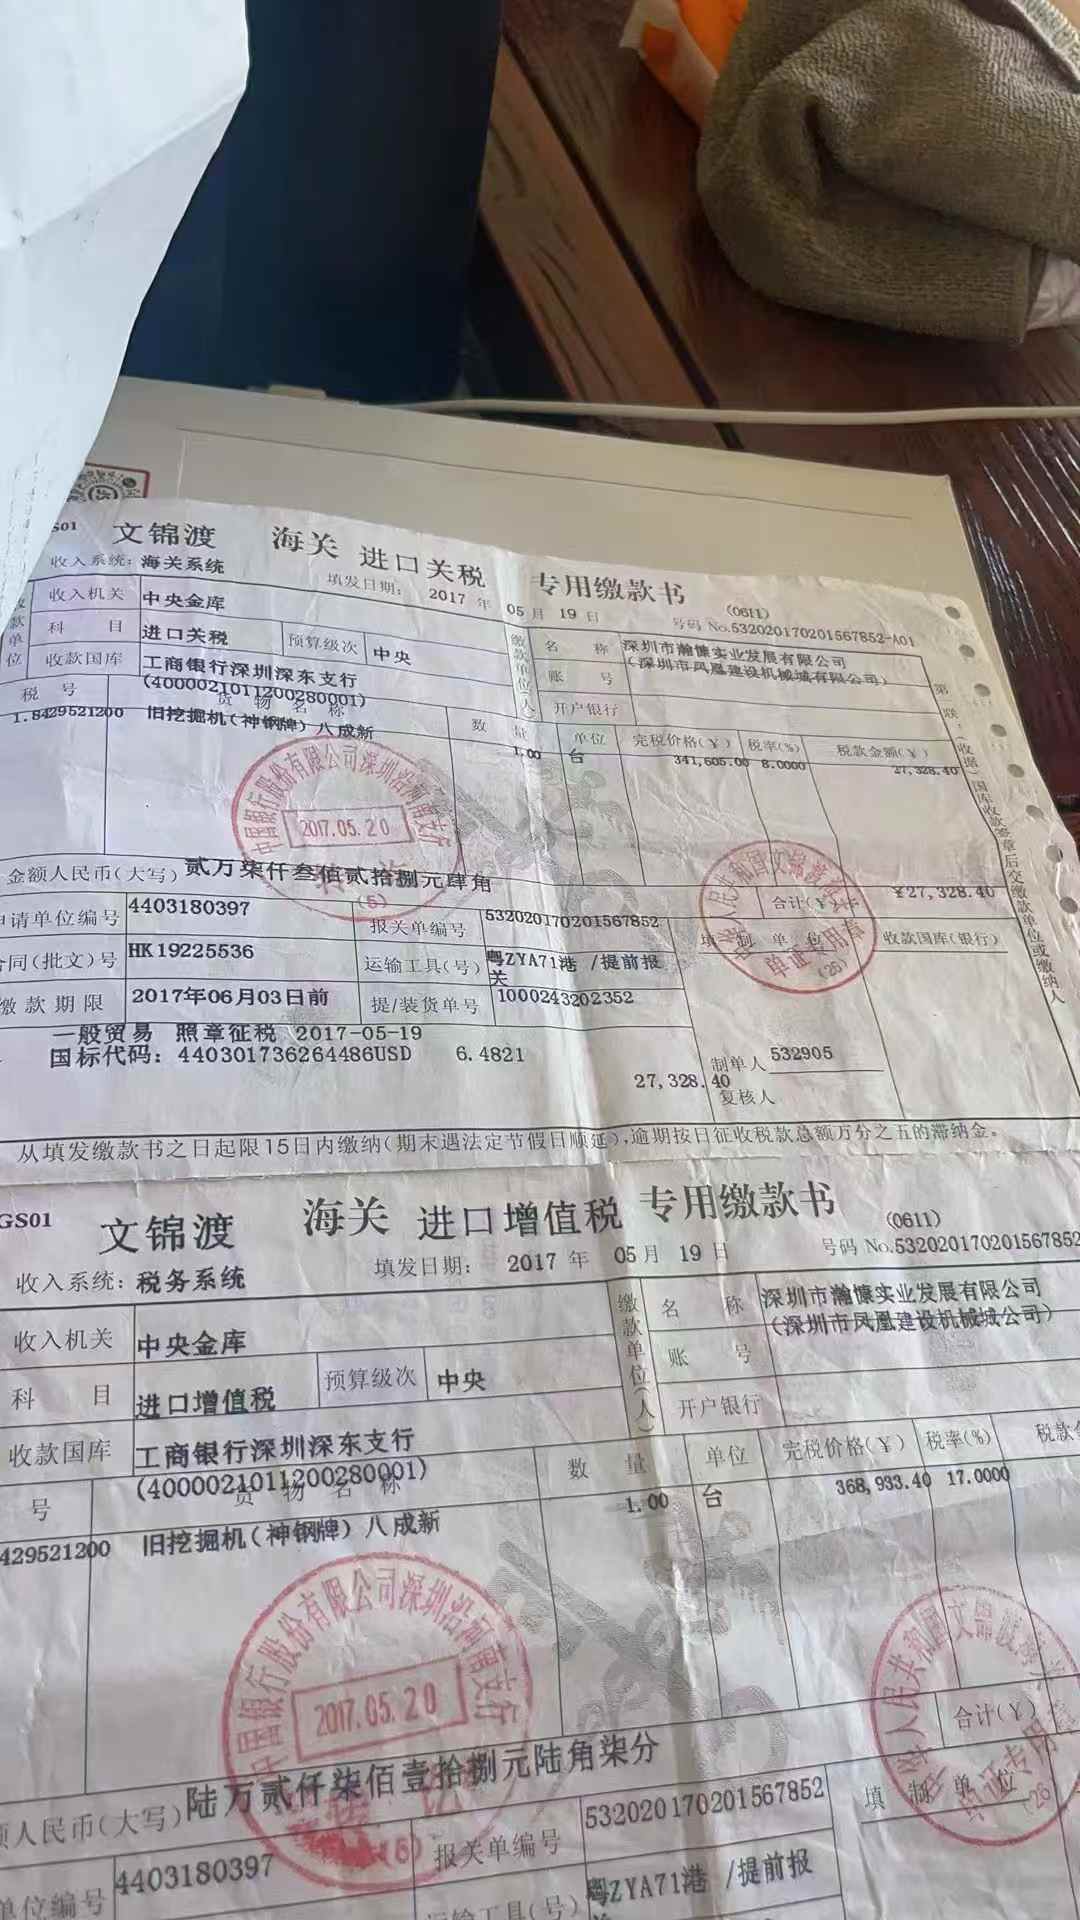 S01 文锦渡 海关 进口关税 专用缴款书 (0611)
收入系统: 海关系统 填发日期: 2017 年 05 月 19 日 号码 No.532020170201567852-A01
收入机关 中央金库
科 目 进口关税 预算级次 中央
收款国库 工商银行深圳深东支行
(4000021011200280001)
款单位
缴款单位(人)
名 称 深圳市瀚慷实业发展有限公司
(深圳市凤凰建设机械城有限公司)
账 号
开户银行
税 号 货 物 名 称 数 量 单位 完税价格(¥) 税率(%) 税款金额(¥)
1.8429521200 旧挖掘机(神钢牌)八成新 1.00 台 341,605.00 8.0000 27,328.40
中国银行股份有限公司深圳沿河南支行
2017.05.20
(5)
金额人民币(大写) 贰万柒仟叁佰贰拾捌元肆角 合计(¥) ¥27,328.40
申请单位编号 4403180397 报关单编号 532020170201567852 填 制 单 位 收款国库(银行)
合同(批文)号 HK19225536 运输工具(号) 粤ZYA71港 /提前报
关
缴款期限 2017年06月03日前 提/装货单号 1000243202352
(26)
一般贸易 照章征税 2017-05-19
国标代码: 440301736264486USD 6.4821
27,328.40
制单人 532905
复核人
第 联:(收据)国库收款签章后交缴款单位或缴纳人
从填发缴款书之日起限15日内缴纳(期末遇法定节假日顺延),逾期按日征收税款总额万分之五的滞纳金。
GS01 文锦渡 海关 进口增值税 专用缴款书 (0611)
收入系统: 税务系统 填发日期: 2017 年 05 月 19 日 号码 No.532020170201567852
收入机关 中央金库
科 目 进口增值税 预算级次 中央
收款国库 工商银行深圳深东支行
(4000021011200280001)
缴款单位(人)
名 称 深圳市瀚慷实业发展有限公司
(深圳市凤凰建设机械城公司)
账 号
开户银行
号 货 物 名 称 数 量 单位 完税价格(¥) 税率(%) 税款金
429521200 旧挖掘机(神钢牌)八成新 1.00 台 368,933.40 17.0000
中国银行股份有限公司深圳沿河南支行
2017.05.20
(5)
人民币(大写) 陆万贰仟柒佰壹拾捌元陆角柒分 合计(¥)
单位编号 4403180397 报关单编号 532020170201567852 填 制 单 位
(26)
运输工具(号) 粤ZYA71港 /提前报